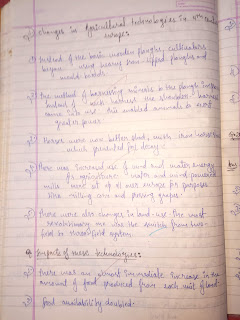 Q) Changes in Agricultural technologies in 11th century
europe
Instead of the basic wooden ploughs, cultivators
began using heavy iron-tipped ploughs and
mould boards.
The method of harnessing animals to the plough improved
Instead of neck harness the shoulder harness
came into use. This enabled animals to exert
greater power.
Horses were now better shod, with iron horse shoes
which prevented foot decay.
There was increased use of wind and water energy
for agriculture. water and wind powered
mills were set up all over europe for purposes
like milling corn and pressing grapes.
There were also changes in land-use. The most
revolutionary was the switch from two-
field to three-field system.
Q) Impacts of these technologies:
There was an almost immediate increase in the
amount of food produced from each unit of land
food availability doubled.